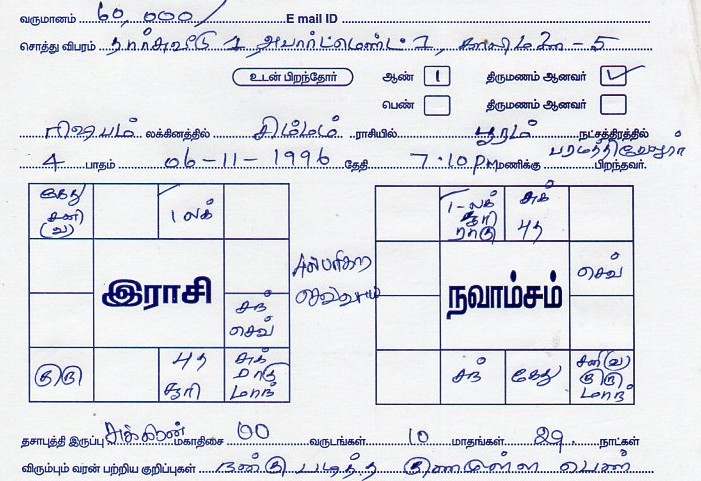 வருமானம் 60,000/ E mail ID
சொத்து விபரம் 1 அபார்ட்மெண்ட் 1, - 5
உடன் பிறந்தோர் ஆண் 1 திருமணம் ஆனவர் ✓
பெண் திருமணம் ஆனவர்
ரிஷபம் லக்கினத்தில் சிம்மம் ராசியில் பூரம் நட்சத்திரத்தில்
4 பாதம் 06-11-1996 தேதி 7.10 PM மணிக்கு பரமத்திவேலூர் பிறந்தவர்.
கேது சனி (வ)
1 லக்
சந் செவ்
குரு
புத சூரி
சுக் ராகு மாந்
இராசி
செவ்வாய்
1-லக் சூரி ராகு
சுக் புத
செவ்
நவாம்சம்
சந்
கேது
சனி(வ) குரு மாந்
தசாபுத்தி இருப்பு சுக்கிரன் மகாதிசை 00 வருடங்கள் 10 மாதங்கள் 29. நாட்கள்
விரும்பும் வரன் பற்றிய குறிப்புகள் நன்கு படித்த குணமுள்ள பெண்